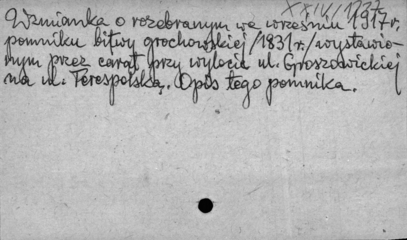 XXIV/1237
Wzmianka o rozebranym we wrześniu 1917 r.
pomniku bitwy grochowskiej /1831 r./ wystawio-
nym przez carat przy wylocie ul. Groszowickiej
na ul. Terespolską. Opis tego pomnika.